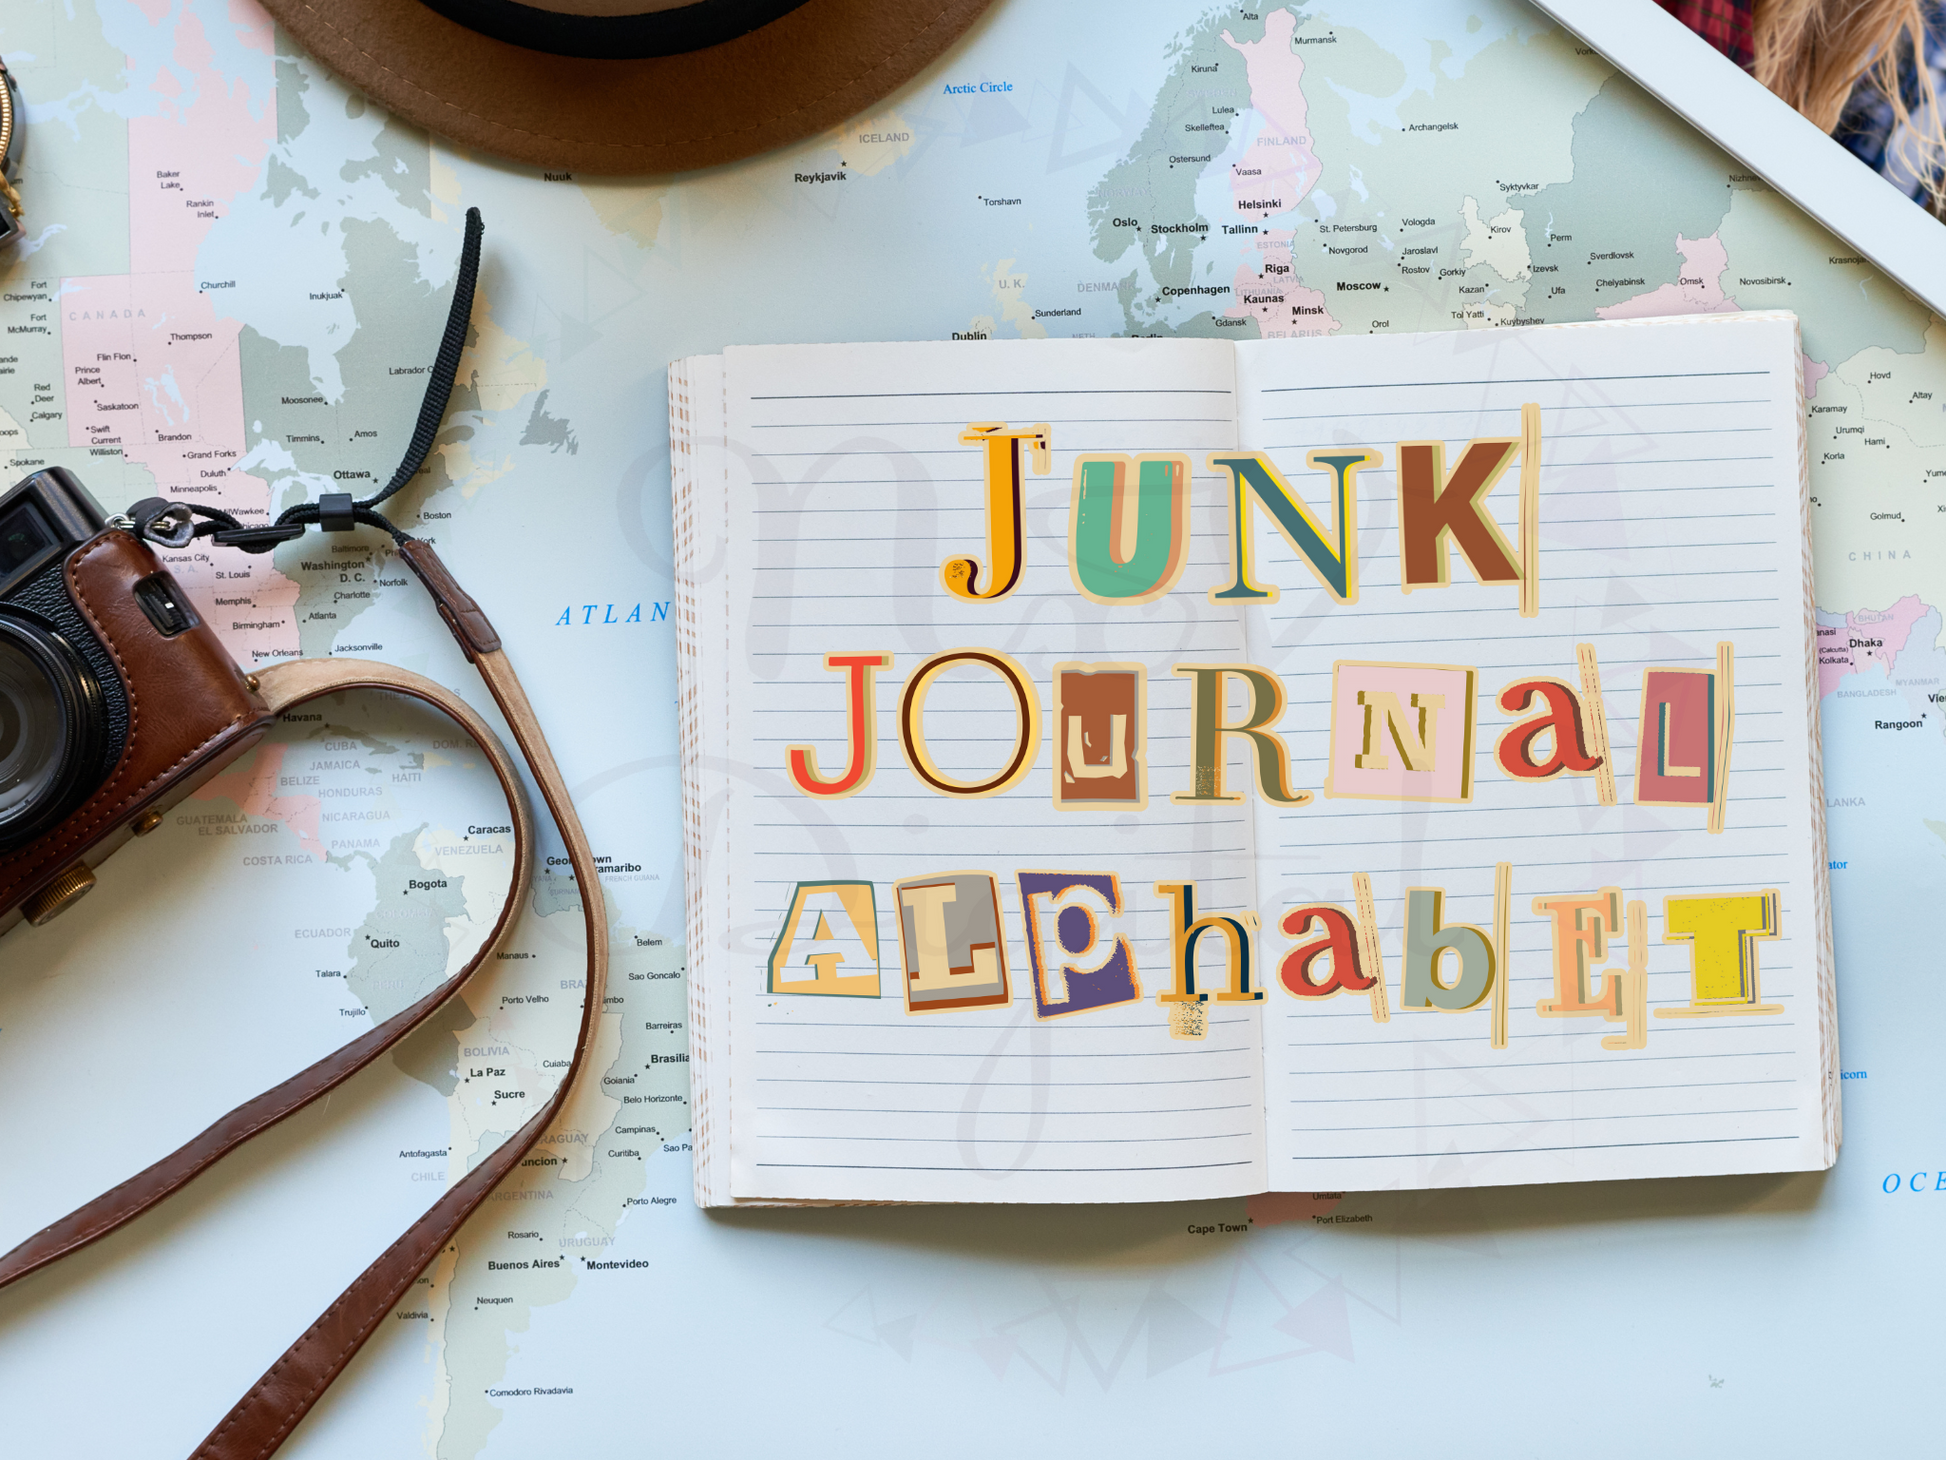 Alta
Murmansk
Kiruna
Arctic Circle
Lulea
Skelleftea
Archangelsk
ICELAND
FINLAND
Ostersund
Vaasa
Baker
Lake
Nuuk
Reykjavik
Syktyvkar
NORWAY
Rankin
Inlet
Torshavn
Helsinki
Oslo
Stockholm
Tallinn
St. Petersburg
Vologda
Kirov
Perm
ESTONIA
Novgorod
Jaroslavl
Sverdlovsk
Riga
Rostov
Gorkiy
Izevsk
LATVIA
Omsk
Novosibirsk
Fort
Chipewyan
Churchill
Inukjuak
U. K.
DENMARK
Copenhagen
LITHUANIA
Moscow
Kazan
Ufa
Chelyabinsk
Kaunas
Fort
McMurray
CANADA
Sunderland
Minsk
Gdansk
Tol Yatti
Kuybyshev
Orol
Thompson
Dublin
BELARUS
Flin Flon
Prince
Albert
Labrador C
Hovd
Red
Deer
Saskatoon
Moosonee
Altay
Calgary
Karamay
Swift
Current
Brandon
Timmins
Amos
Urumqi
Hami
Williston
Grand Forks
Korla
Spokane
Duluth
Ottawa
Minneapolis
JUNK
MilWaukee
Boston
Golmud
York
Baltimore
CHINA
Kansas City
Washington
D. C.
St. Louis
Norfolk
Memphis
Charlotte
ATLAN
Atlanta
Birmingham
BHUTAN
Jacksonville
Dhaka
New Orleans
(Calcutta)
Kolkata
JOURNaL
MYANMAR
BANGLADESH
Havana
Rangoon
CUBA
DOM. R
JAMAICA
BELIZE
HAITI
HONDURAS
LANKA
GUATEMALA
NICARAGUA
EL SALVADOR
Caracas
PANAMA
VENEZUELA
COSTA RICA
ALphabET
Bogota
ECUADOR
Quito
Belem
Manaus
Talara
Sao Goncalo
Porto Velho
Trujillo
Barreiras
BOLIVIA
Brasilia
La Paz
Cuiaba
Goiania
Sucre
Belo Horizonte
Campinas
Antofagasta
Curitiba
CHILE
ARGENTINA
Umtata
Porto Alegre
Port Elizabeth
Cape Town
OCE
Rosario
URUGUAY
Buenos Aires
Montevideo
Neuquen
Valdivia
Comodoro Rivadavia